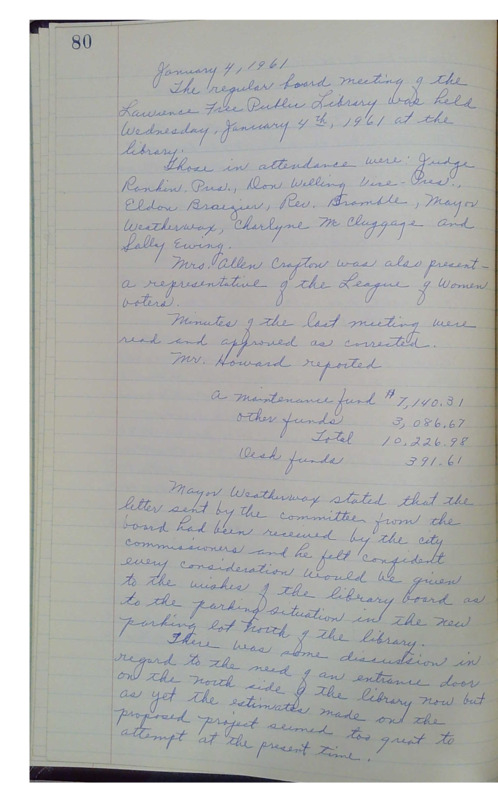 80
January 4, 1961
The regular board meeting of the
Lawrence Free Public Library was held
Wednesday, January 4th, 1961 at the
library.
Those in attendance were: Judge
Rankin, Pres., Don Welling Vice-Pres.,
Eldon Brazier, Rev. Bramble, Mayor
Weatherwax, Charlyne McCluggage and
Sally Ewing.
Mrs. Allen Crafton was also present -
a representative of the League of Women
voters.
Minutes of the last meeting were
read and approved as corrected.
Mr. Howard reported
a maintenance fund $7,140.31
other funds 3,086.67
Total 10,226.98
Desk funds 391.61
Mayor Weatherwax stated that the
letter sent by the committee from the
board had been received by the city
commissioners and he felt confident
every consideration would be given
to the wishes of the library board as
to the parking situation in the new
parking lot north of the library.
There was some discussion in
regard to the need of an entrance door
on the north side of the library now but
as yet the estimates made on the
proposed project seemed too great to
attempt at the present time.